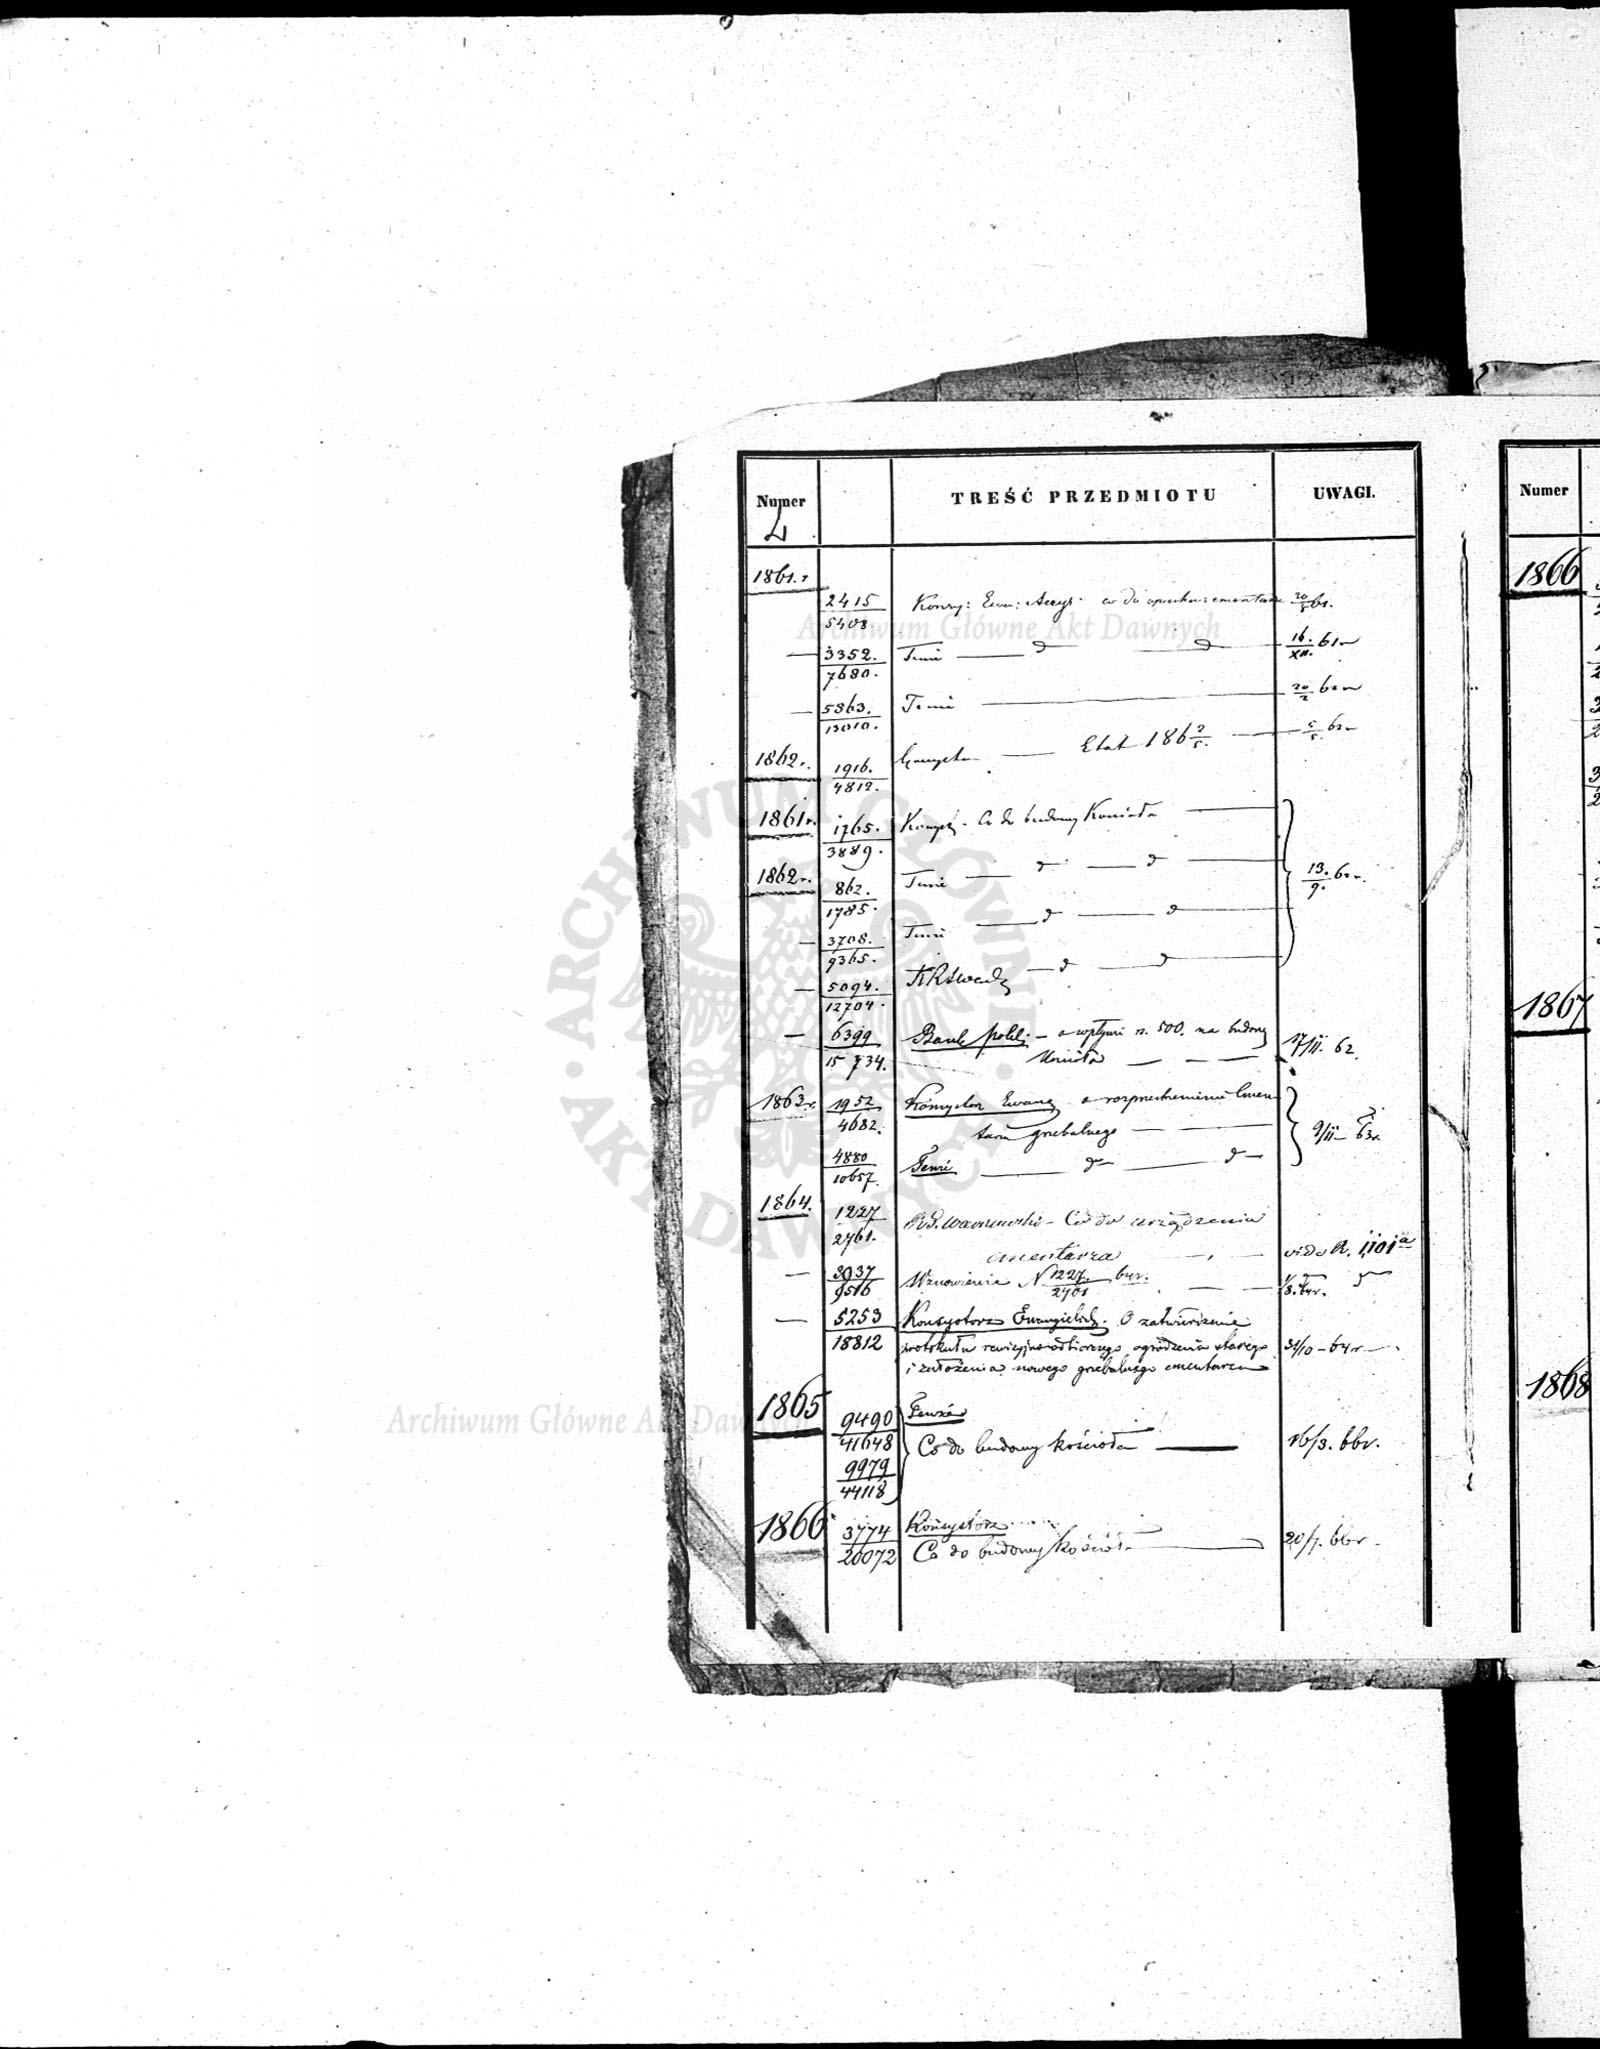 Numer
TREŚĆ PRZEDMIOTU
UWAGI.
Numer
L
1861. r
2415
5408
Konsy: Ewa: Augs. co do cmentarza 20/5 61.
3352.
7680.
Tenże d d 16./XII. 61
5863.
13010.
Tenże 20/2 62
1862 r.
1916.
4812.
Etat 186 2/5. 5/5. 62
1861 r.
1765.
3889.
Konsyst. Co do budowy Kościoła
1862 r.
862.
1785.
Tenże d d
13./9. 62 r.
3708.
9365.
Tenże d d
5094.
12704.
d d
6399
15734.
Bank polski - o wpłynie r. 500. na budowę
Kościoła
17/11. 62.
1863 r.
1952
4682.
Konsystor Ewang o rozprzestrzenieniu Cmen
tarza grzebalnego
9/11 - 63 r.
4880
10657.
Tenże d d
1864.
1227
2761.
Co do urządzenia
cmentarza
vide R. 1101 a
3937
9516
Wznowienie N 1227/2761 64 r.
5253
18812
Konsystorz Ewangielicki. O zatwierdzenie
protokułu rewizyjno odbiorczego ogrodzenia starego
i założenia nowego grzebalnego cmentarza
31/10 - 64 r
1865
9490
41648
9979
44118
Tenże
Co do budowy kościoła
16/3. 66 r.
1866
3774
20072
Konsystorz
Co do budowy kościoła
20/7. 66 r
1866
1867
1868
Archiwum Główne Akt Dawnych
ARCHIWUM GŁÓWNE
AKT DAWNYCH
Archiwum Główne Akt Dawnych